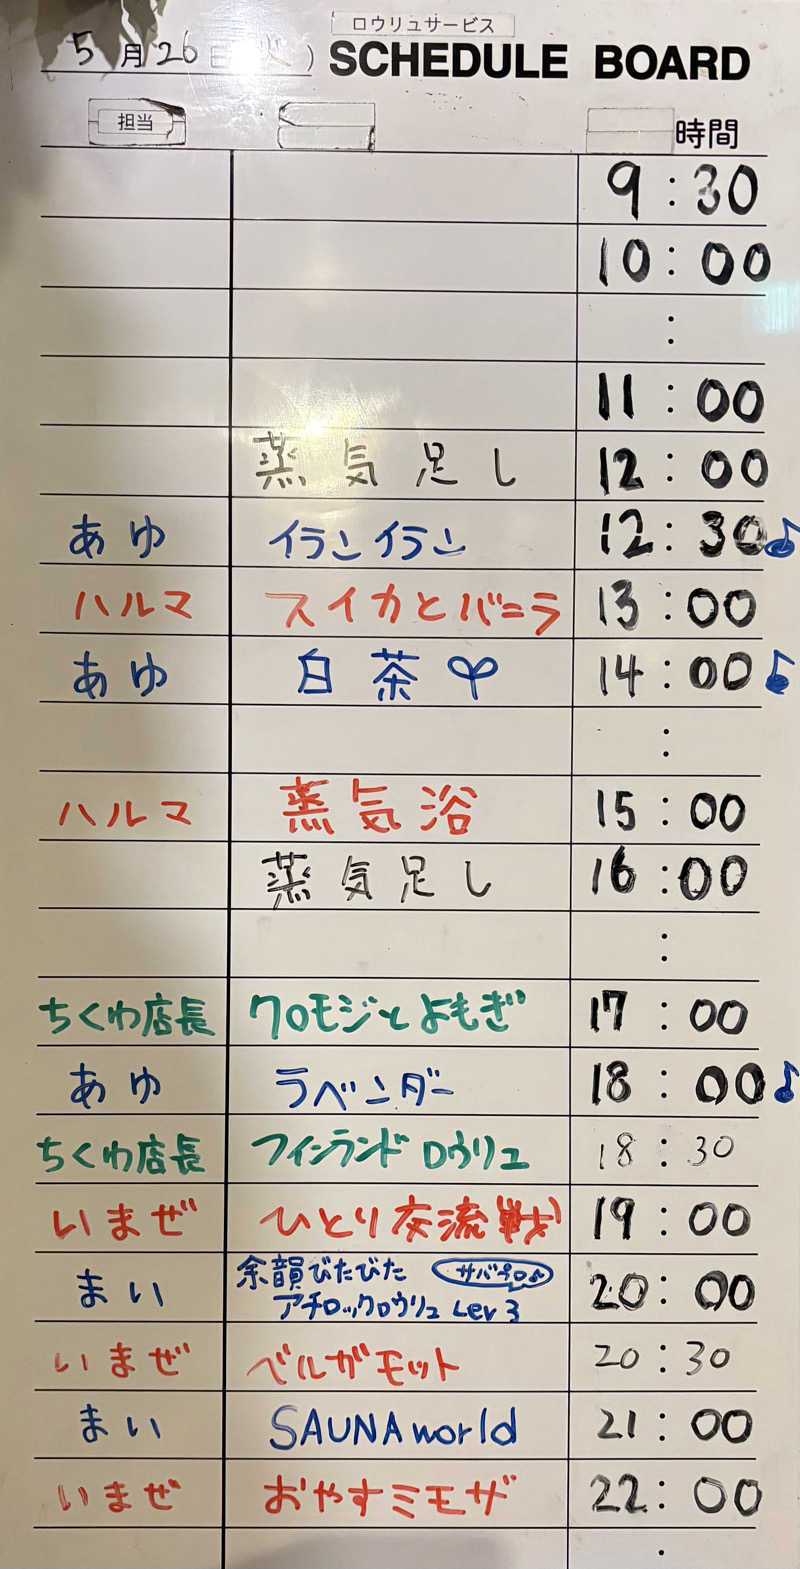 ロウリュサービス
5月26日(火) SCHEDULE BOARD
担当 時間
9:30
10:00
:
11:00
蒸気足し 12:00
あゆ イランイラン 12:30♪
ハルマ スイカとバニラ 13:00
あゆ 白茶 14:00♪
:
ハルマ 蒸気浴 15:00
蒸気足し 16:00
:
ちくわ店長 クロモジとよもぎ 17:00
あゆ ラベンダー 18:00♪
ちくわ店長 フィンランドロウリュ 18:30
いまぜ ひとり交流戦 19:00
まい 余韻びたびた サバチロ♪ 20:00
アチロックロウリュ Lev 3
いまぜ ベルガモット 20:30
まい SAUNA world 21:00
いまぜ おやすミモザ 22:00
: